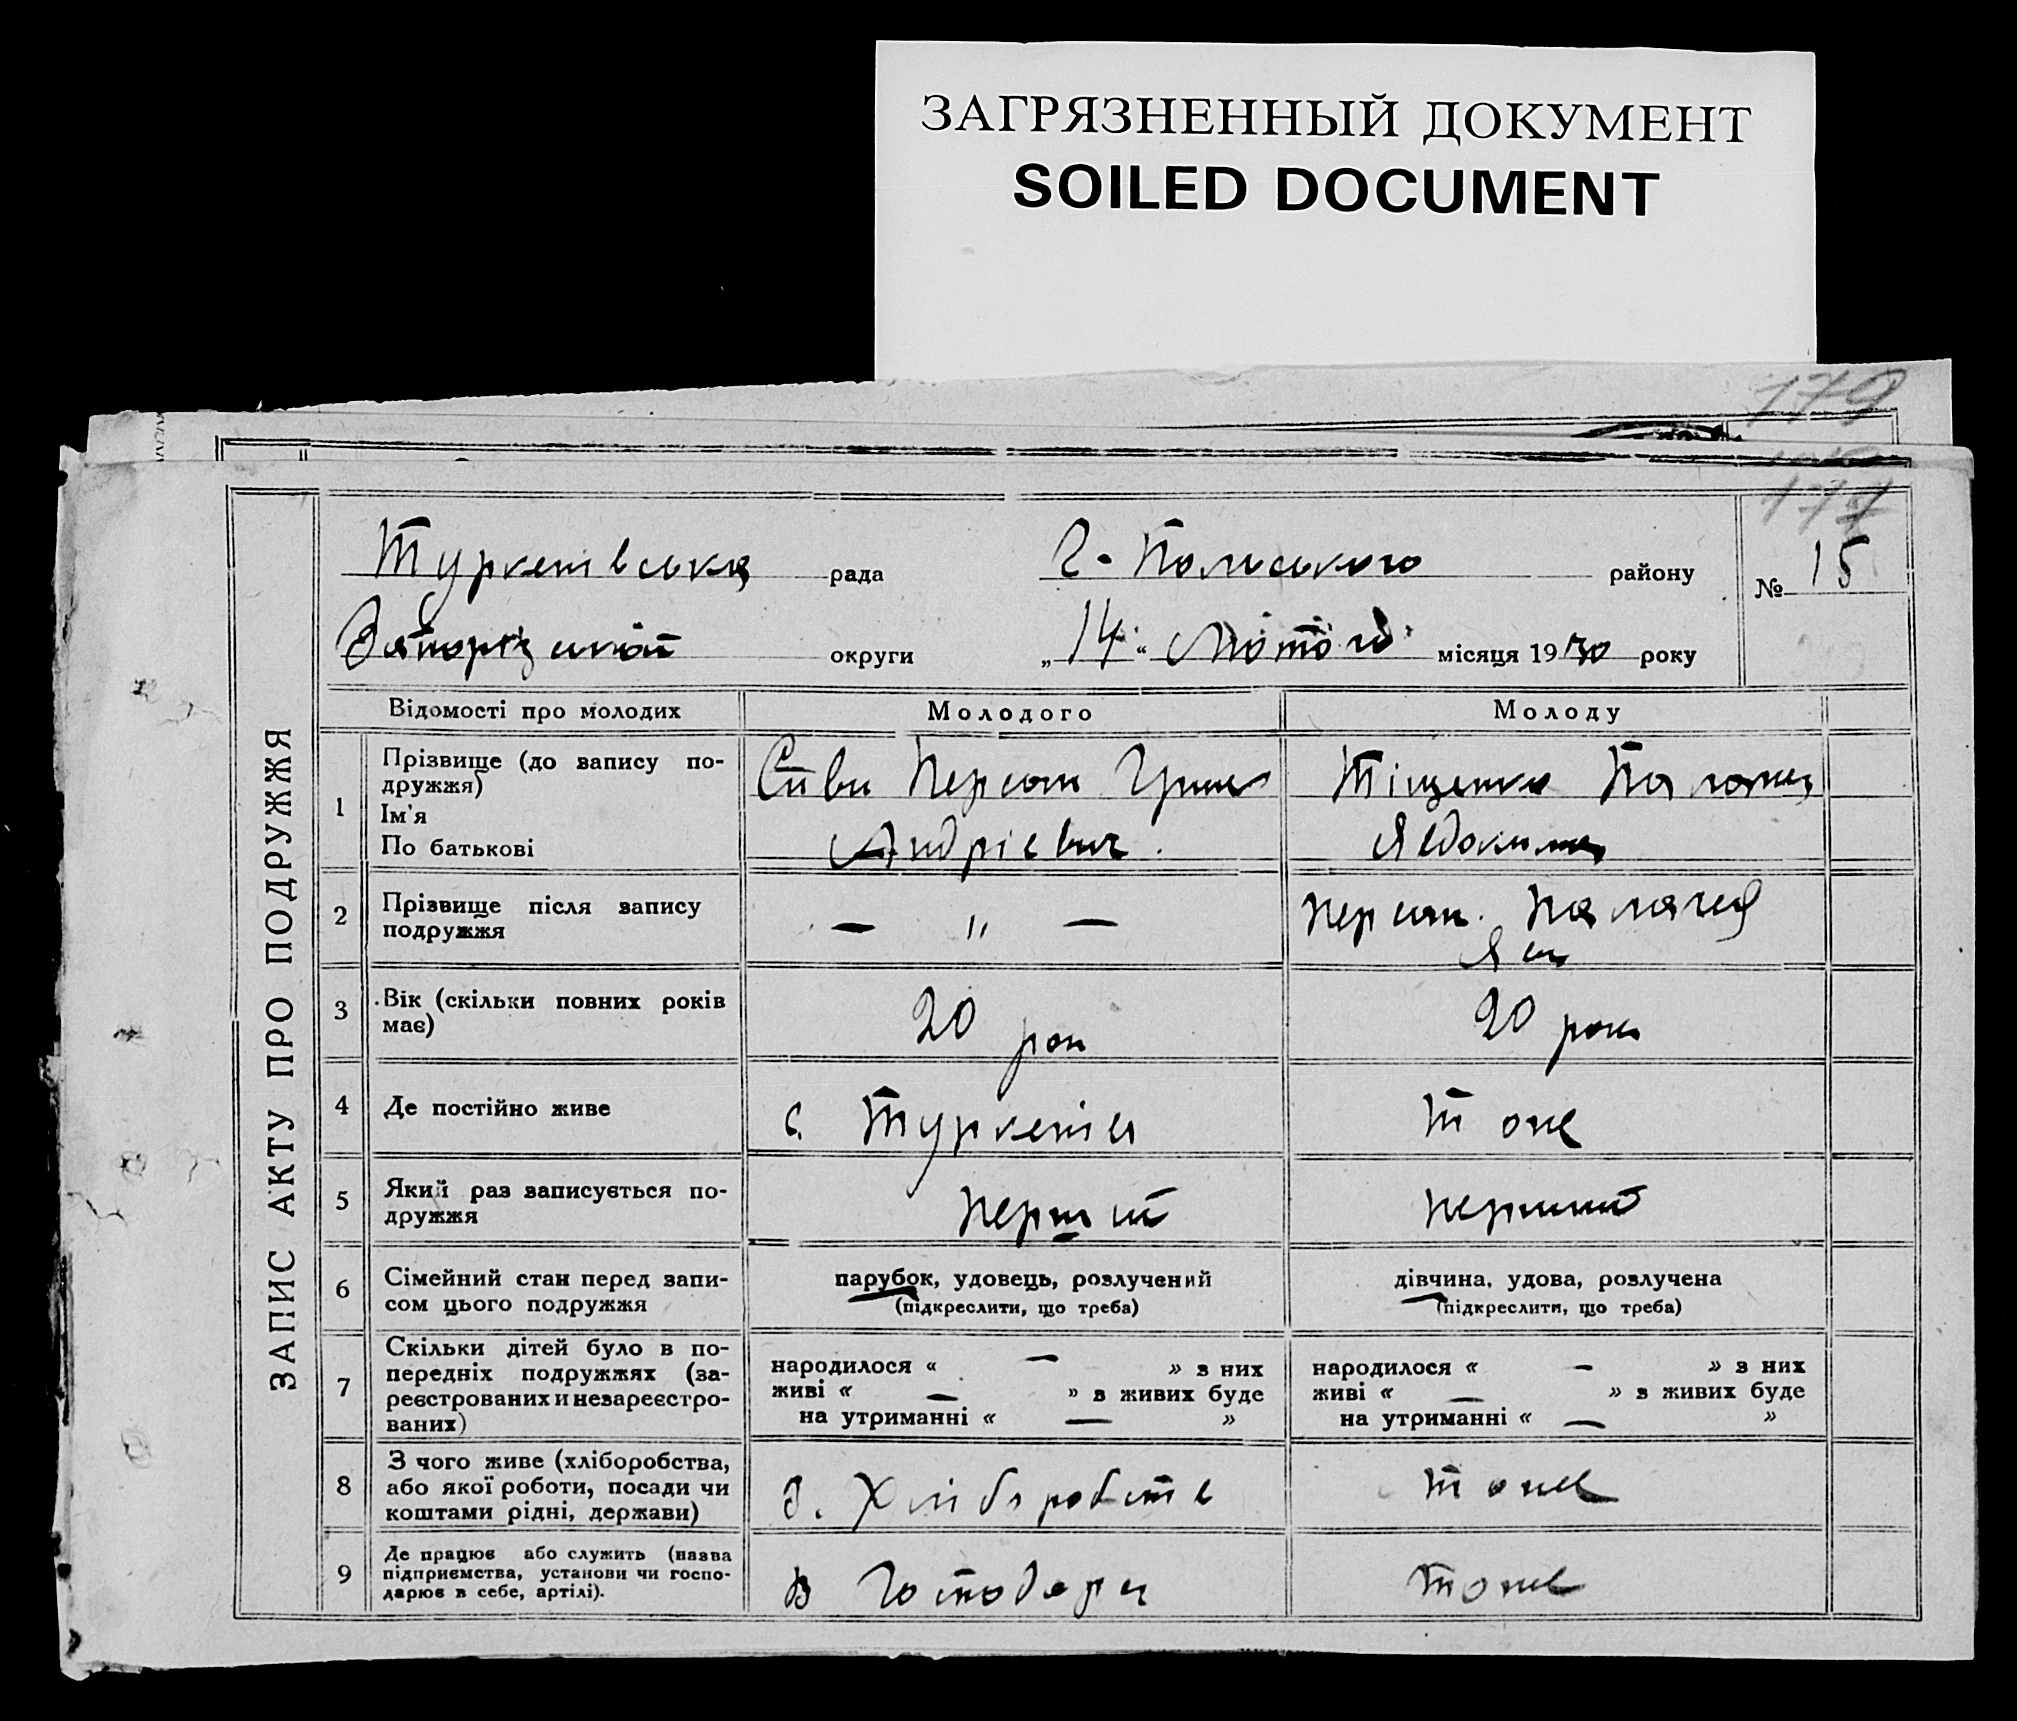 ЗАГРЯЗНЕННЫЙ ДОКУМЕНТ
SOILED DOCUMENT
179
177
ЗАПИС АКТУ ПРО ПОДРУЖЖЯ
Туркенівська рада Г-Польського району № 15
округи „14“ Лютого місяця 1930 року
Відомості про молодих Молодого Молоду
1 Прізвище (до запису по-
дружжя)
Ім'я
По батькові
Андрієвич.
Тіщенко
2 Прізвище після запису
подружжя
— „ —
3 Вік (скільки повних років
має)
20 рок
20 рок
4 Де постійно живе
с. Туркенівка
тоже
5 Який раз записується по-
дружжя
перший
перший
6 Сімейний стан перед запи-
сом цього подружжя
парубок, удовець, розлучений
(підкреслити, що треба)
дівчина, удова, розлучена
(підкреслити, що треба)
7 Скільки дітей було в по-
передніх подружжях (за-
реєстрованих и незареєстро-
ваних)
народилося « — » з них
живі « — » в живих буде
на утриманні « — »
народилося « — » з них
живі « — » в живих буде
на утриманні « — »
8 З чого живе (хліборобства,
або якої роботи, посади чи
коштами рідні, держави)
з. Хліборобств
тоже
9 Де працює або служить (назва
підприємства, установи чи госпо-
дарює в себе, артілі).
в Господарч
тоже